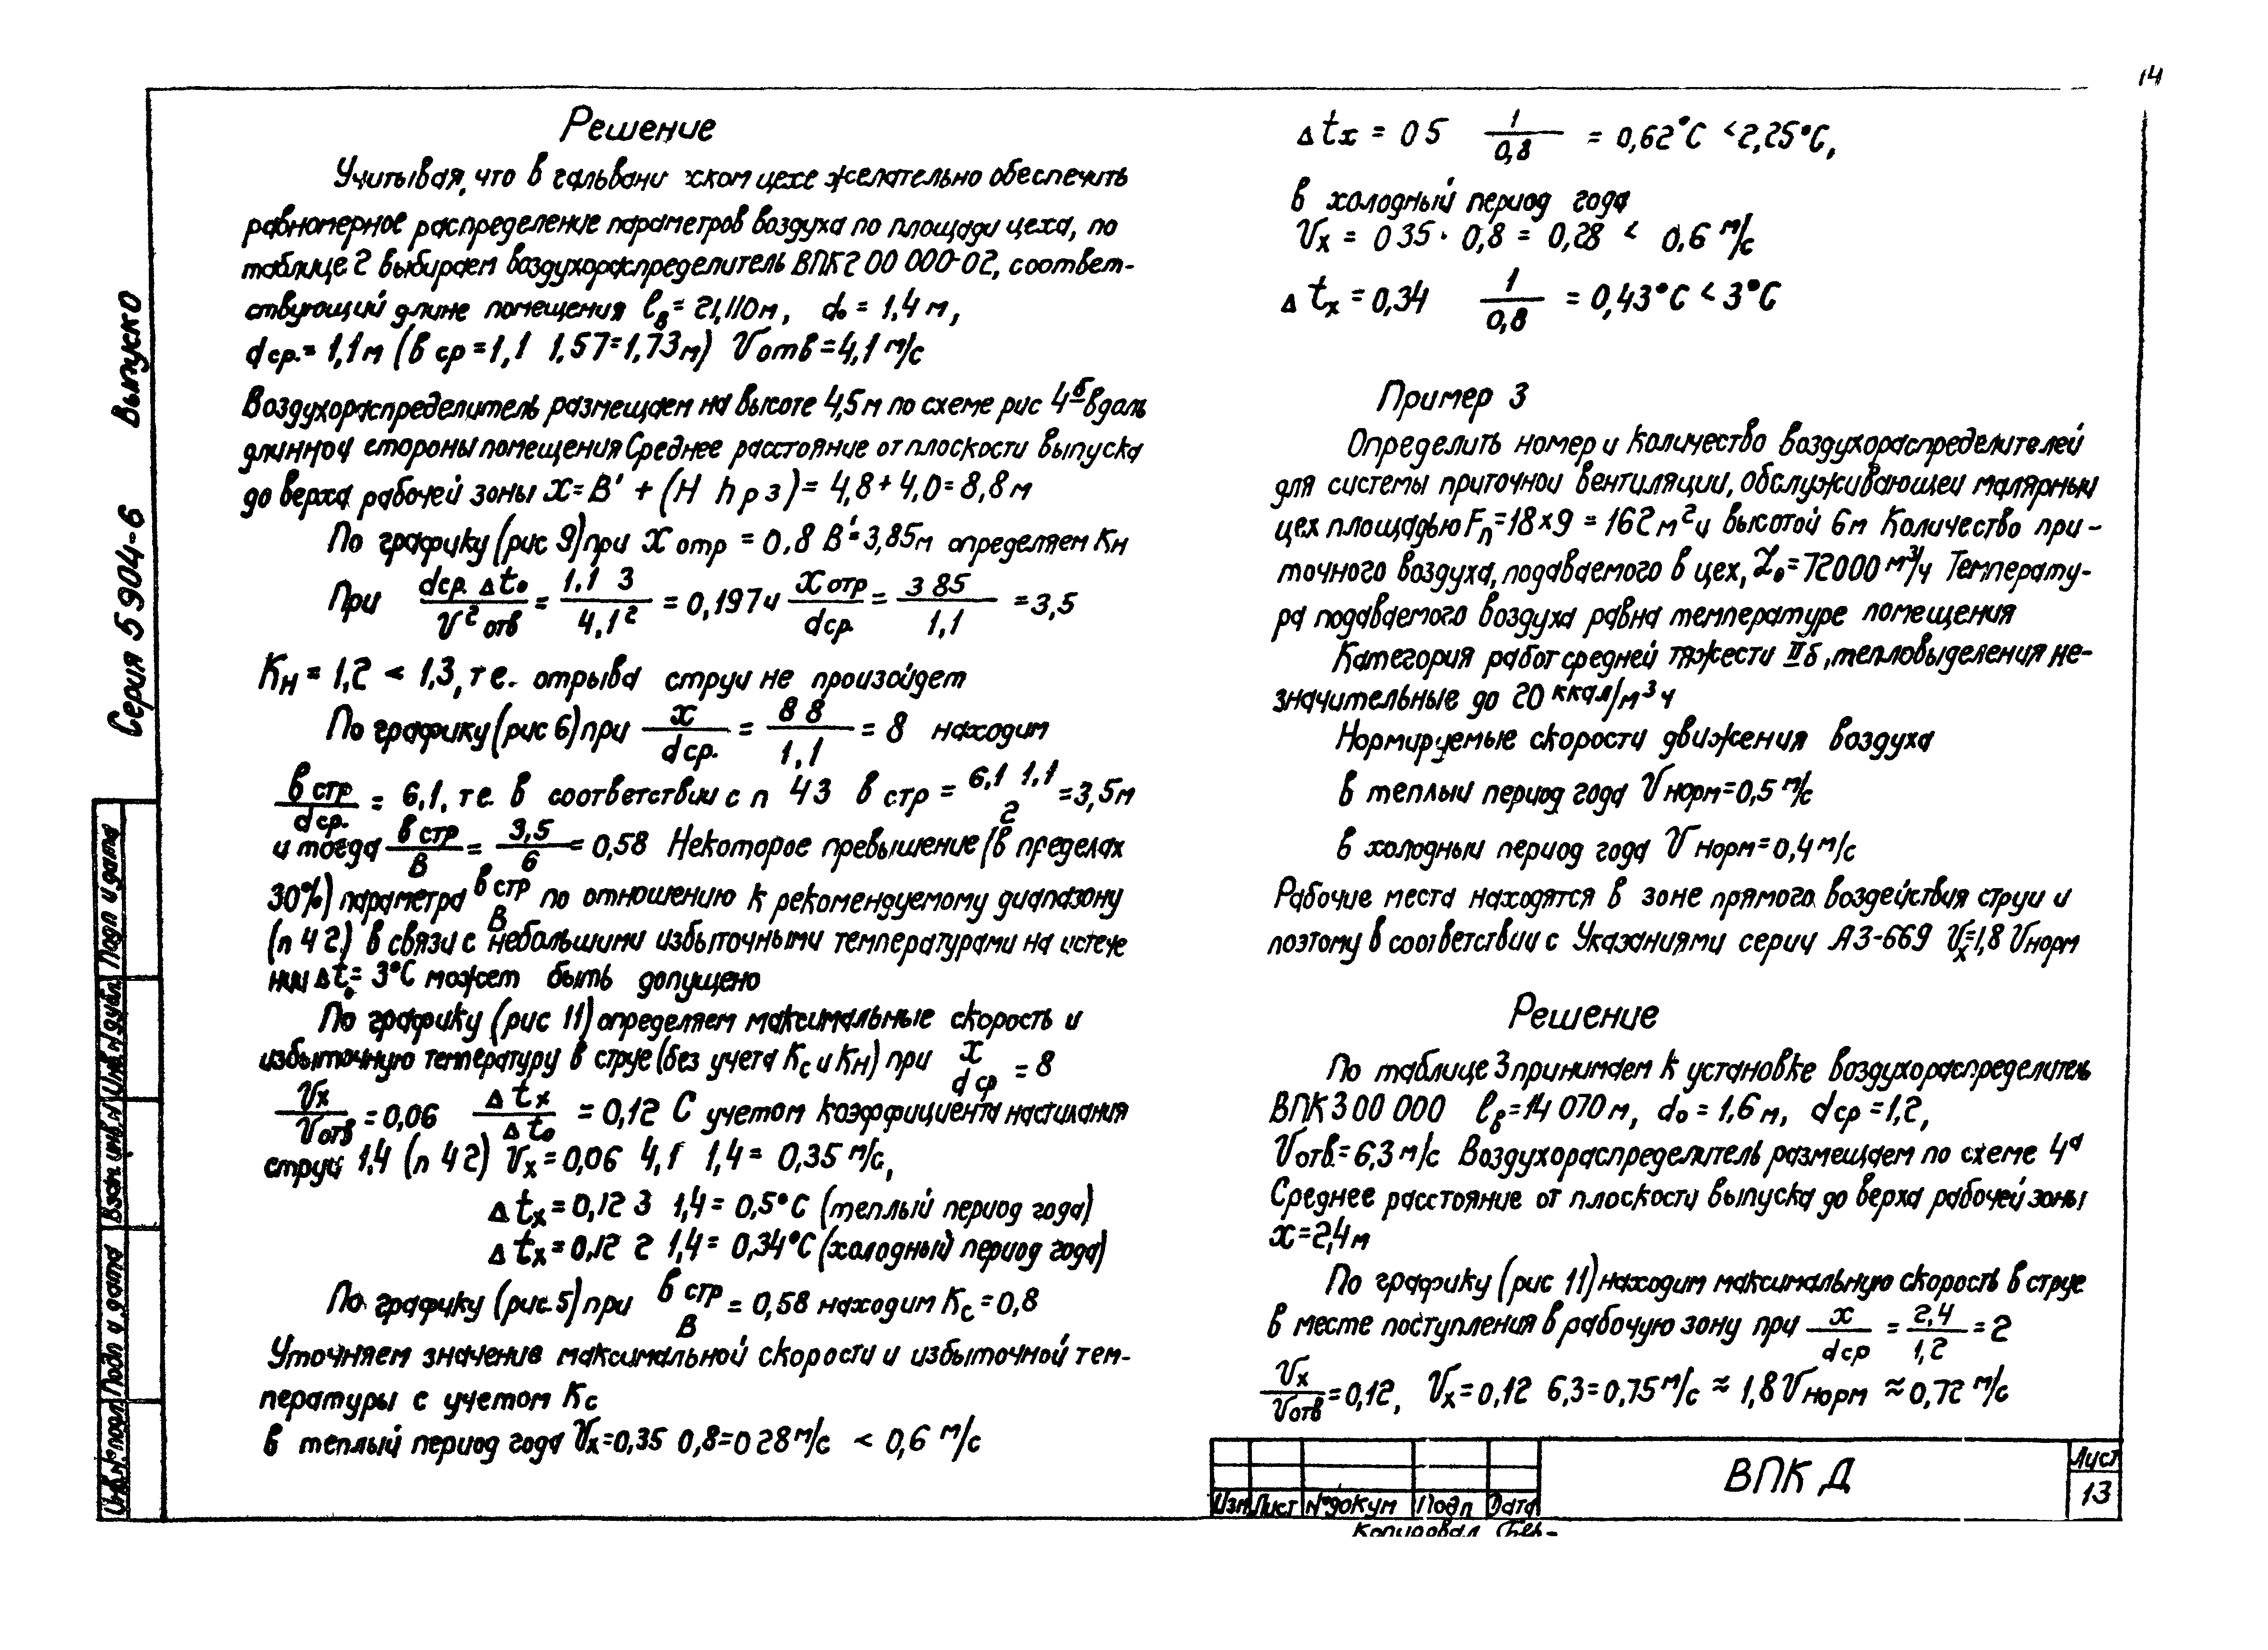 14
Решение
Учитывая, что в гальвани ском цехе желательно обеспечить
равномерное распределение параметров воздуха по площади цеха, по
таблице 2 выбираем воздухораспределитель ВПК2 00 000-02, соответ-
ствующий длине помещения ℓв = 21,110м, d₀ = 1,4 м,
dср. = 1,1м (в ср = 1,1 1,57 = 1,73м) Vотв = 4,1 м/с
Воздухораспределитель размещаем на высоте 4,5м по схеме рис 4б вдаль
длинной стороны помещения Среднее расстояние от плоскости выпуска
до верха рабочей зоны x = B' + (H h р з) = 4,8 + 4,0 = 8,8 м
По графику (рис 9) при x отр = 0,8 B' = 3,85м определяем Кн
При dср. Δt₀ / V² отв = 1,1 3 / 4,1² = 0,197 и x отр / dср. = 3 85 / 1,1 = 3,5
Кн = 1,2 < 1,3, т е. отрыва струи не произойдет
По графику (рис 6) при x / dср. = 8 8 / 1,1 = 8 находим
в стр / dср. = 6,1, т е. в соответствии с п 4 3 в стр = 6,1 1,1 / 2 = 3,5м
и тогда в стр / В = 3,5 / 6 = 0,58 Некоторое превышение (в пределах
30%) параметра в стр / В по отношению к рекомендуемому диапазону
(п 4 2) в связи с небольшими избыточными температурами на истече
нии Δt₀ = 3°С может быть допущено
По графику (рис 11) определяем максимальные скорость и
избыточную температуру в струе (без учета Кс и Кн) при x / dср = 8
Vx / Vотв = 0,06 Δtx / Δt₀ = 0,12 С учетом коэффициента настилания
струи 1,4 (п 4 2) Vx = 0,06 4,1 1,4 = 0,35 м/с,
Δtx = 0,12 3 1,4 = 0,5°С (теплый период года)
Δtx = 0,12 2 1,4 = 0,34°С (холодный период года)
По графику (рис. 5) при в стр / В = 0,58 находим Кс = 0,8
Уточняем значение максимальной скорости и избыточной тем-
пературы с учетом Кс
в теплый период года Vx = 0,35 0,8 = 0 28 м/с < 0,6 м/с
Δtx = 0 5 1 / 0,8 = 0,62°С < 2,25°С,
в холодный период года
Vx = 0 35 · 0,8 = 0,28 < 0,6 м/с
Δtx = 0,34 1 / 0,8 = 0,43°С < 3°С
Пример 3
Определить номер и количество воздухораспределителей
для системы приточной вентиляции, обслуживающей малярный
цех площадью Fп = 18 x 9 = 162 м² и высотой 6м Количество при-
точного воздуха, подаваемого в цех, L₀ = 72000 м³/ч Температу-
ра подаваемого воздуха равна температуре помещения
Категория работ средней тяжести IIб, тепловыделения не-
значительные до 20 ккал/м³ ч
Нормируемые скорости движения воздуха
в теплый период года V норм = 0,5 м/с
в холодный период года V норм = 0,4 м/с
Рабочие места находятся в зоне прямого воздействия струи и
поэтому в соответствии с Указаниями серии А3-669 Vx = 1,8 Vнорм
Решение
По таблице 3 принимаем к установке воздухораспределитель
ВПК3 00 000 ℓв = 14 070м, d₀ = 1,6 м, dср = 1,2,
Vотв. = 6,3 м/с Воздухораспределитель размещаем по схеме 4а
Среднее расстояние от плоскости выпуска до верха рабочей зоны
x = 2,4 м
По графику (рис 11) находим максимальную скорость в струе
в месте поступления в рабочую зону при x / dср = 2,4 / 1,2 = 2
Vx / Vотв = 0,12, Vx = 0,12 6,3 = 0,75 м/с ≈ 1,8 Vнорм ≈ 0,72 м/с
Серия 5 904-6 Выпуск 0
Инв.№ подл Подп и дата Взам инв.N Инв.N дубл Подп и дата
Изм Лист №докум Подп Дата
ВПК Д
Лист
13
Копировал